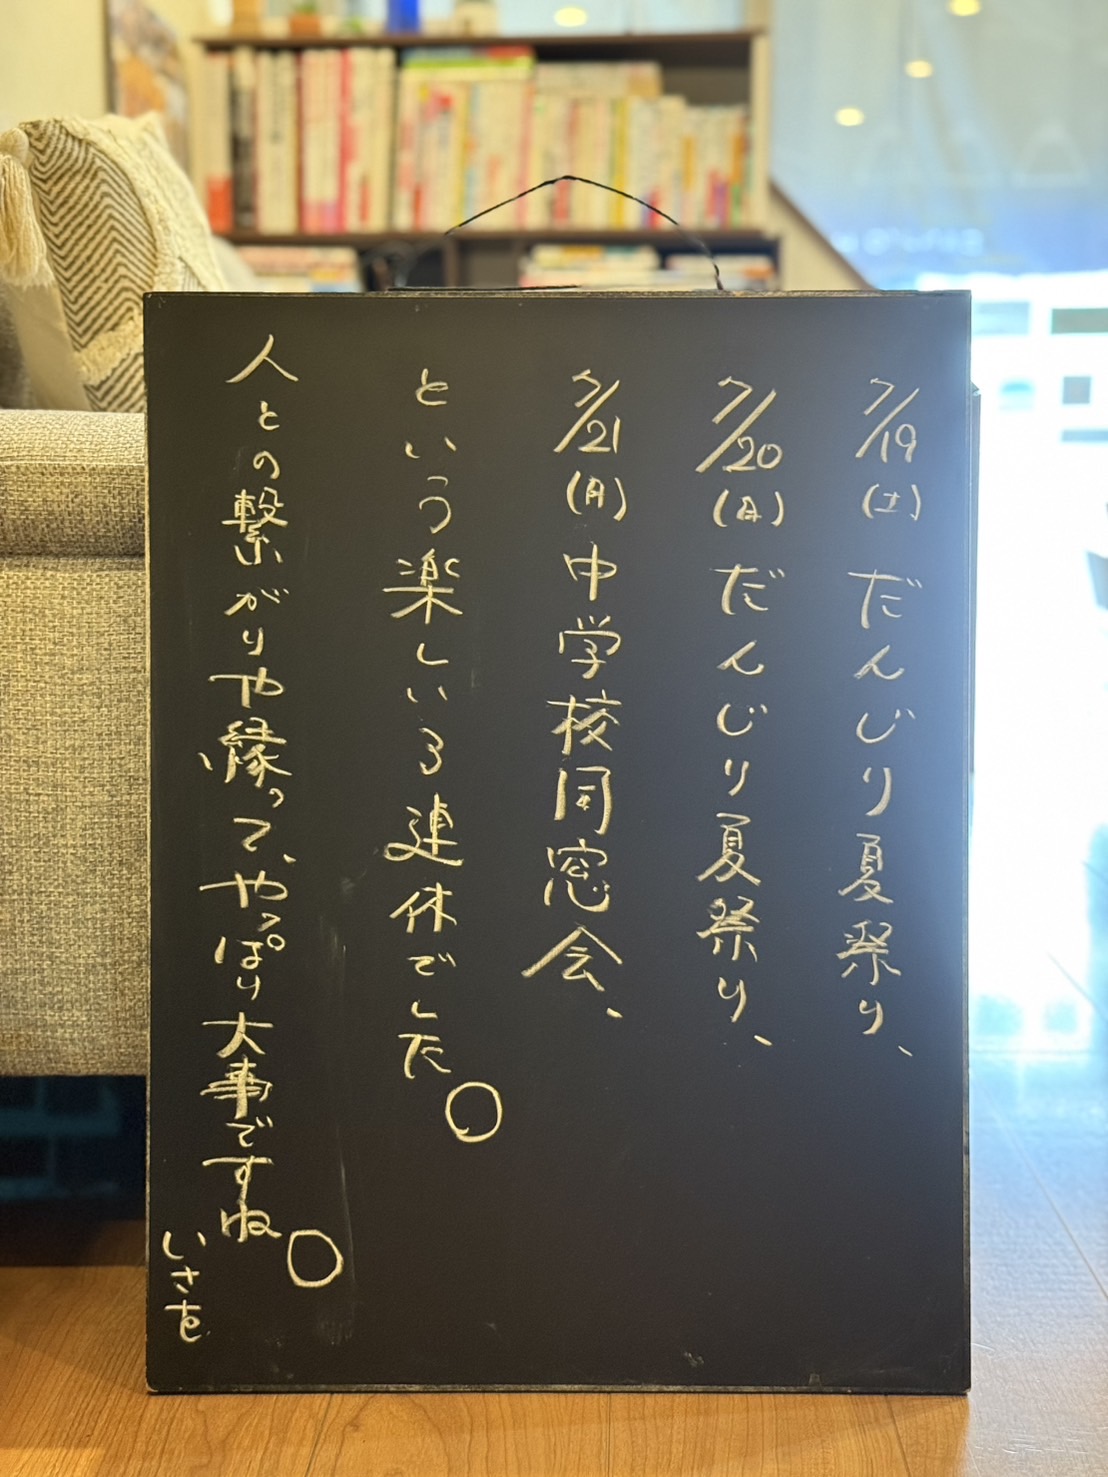 7/19(土)だんじり夏祭り、
7/20(日)だんじり夏祭り、
7/21(月)中学校同窓会、
という楽しい3連休でした。
人との繋がりや縁って、やっぱり大事ですね。
いさを